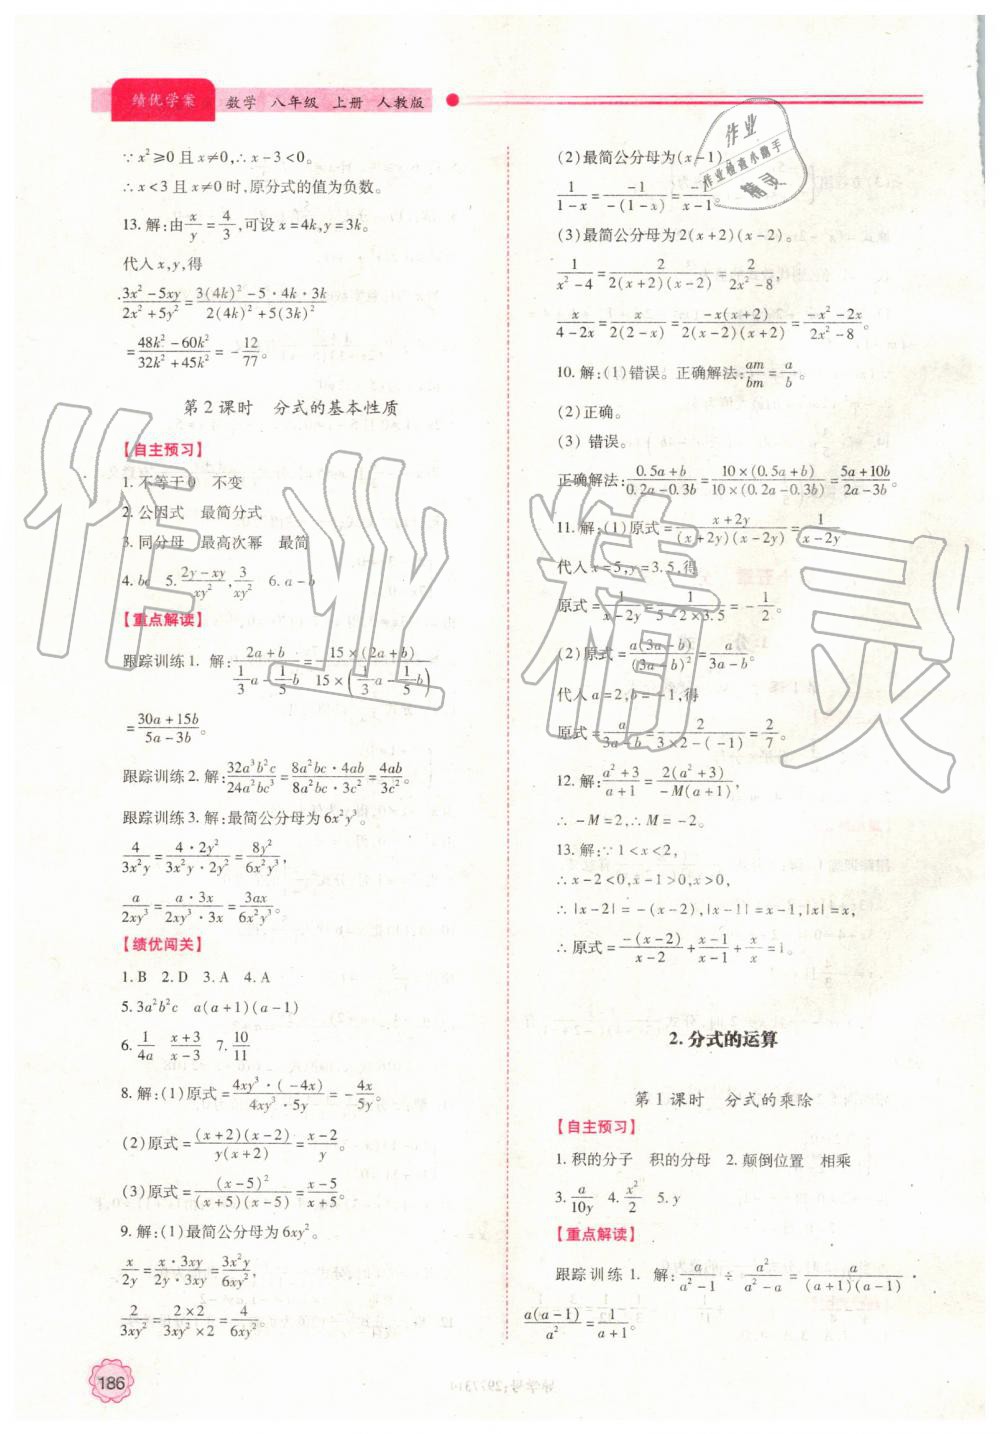 绩优学案 数学 八年级 上册 人教版
∵x²≥0且x≠0,∴x-3<0。
∴x<3且x≠0时,原分式的值为负数。
13.解:由x/y=4/3,可设x=4k,y=3k。
代入x,y,得
(3x²-5xy)/(2x²+5y²)=(3(4k)²-5·4k·3k)/(2(4k)²+5(3k)²)
=(48k²-60k²)/(32k²+45k²)=-12/77。
第2课时 分式的基本性质
【自主预习】
1.不等于0 不变
2.公因式 最简分式
3.同分母 最高次幂 最简
4.bc 5.(2y-xy)/xy²,3/xy² 6.a-b
【重点解读】
跟踪训练1. 解:(2a+b)/(1/3a-1/5b)=(15×(2a+b))/(15×(1/3a-1/5b))
=(30a+15b)/(5a-3b)。
跟踪训练2.解:32a³b²c/24a²bc³=(8a²bc·4ab)/(8a²bc·3c²)=4ab/3c²。
跟踪训练3.解:最简公分母为6x²y³。
4/3x²y=(4·2y²)/(3x²y·2y²)=8y²/6x²y³,
a/2xy³=(a·3x)/(2xy³·3x)=3ax/6x²y³。
【绩优闯关】
1.B 2.D 3.A 4.A
5.3a²b²c a(a+1)(a-1)
6.1/4a (x+3)/(x-3) 7.10/11
8.解:(1)原式=(4xy³·(-4x))/(4xy³·5y)=-4x/5y。
(2)原式=((x+2)(x-2))/(y(x+2))=(x-2)/y。
(3)原式=(x-5)²/((x+5)(x-5))=(x-5)/(x+5)。
9.解:(1)最简公分母为6xy²。
x/2y=(x·3xy)/(2y·3xy)=3x²y/6xy²,
2/3xy²=(2×2)/(3xy²×2)=4/6xy²。
186
(2)最简公分母为(x-1)。
1/(1-x)=-1/(-(1-x))=-1/(x-1)。
(3)最简公分母为2(x+2)(x-2)。
1/(x²-4)=2/(2(x+2)(x-2))=2/(2x²-8),
x/(4-2x)=x/(2(2-x))=(-x(x+2))/(2(x-2)(x+2))=(-x²-2x)/(2x²-8)。
10.解:(1)错误。正确解法:am/bm=a/b。
(2)正确。
(3)错误。
正确解法:(0.5a+b)/(0.2a-0.3b)=(10×(0.5a+b))/(10×(0.2a-0.3b))=(5a+10b)/(2a-3b)。
11.解:(1)原式=(x+2y)/((x+2y)(x-2y))=1/(x-2y)
代入x=5,y=3.5,得
原式=1/(x-2y)=1/(5-2×3.5)=-1/2。
(2)原式=(a(3a-b))/(3a-b)²=a/(3a-b)。
代入a=2,b=-1,得
原式=a/(3a-b)=2/(3×2-(-1))=2/7。
12.解:(a²+3)/(a+1)=(2(a²+3))/(-M(a+1)),
∴-M=2,∴M=-2。
13.解:∵1<x<2,
∴x-2<0,x-1>0,x>0,
∴|x-2|=-(x-2),|x-1|=x-1,|x|=x,
∴原式=(-(x-2))/(x-2)-(x-1)/(x-1)+x/x=1。
2.分式的运算
第1课时 分式的乘除
【自主预习】
1.积的分子 积的分母 2.颠倒位置 相乘
3.a/10y 4.x²/2 5.y
【重点解读】
跟踪训练1. 解:a/(a²-1)÷a²/(a²-a)=a/((a+1)(a-1))·
a(a-1)/a²=1/(a+1)。
作业
作业检查小助手
精灵
作业精灵